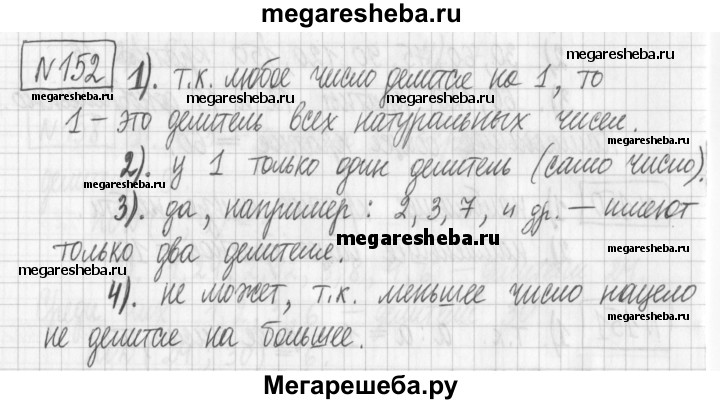 megaresheba.ru
№152 1). т.к. любое число делится на 1, то
megaresheba.ru
megaresheba.ru
megaresheba.ru megaresheba.ru
1 – это делитель всех натуральных чисел.
2). у 1 только один делитель (само число).
megaresheba.ru
3). да, например: 2, 3, 7, и др. – имеют
megaresheba.ru
только два делителя.
megaresheba.ru
megaresheba.ru
4). не может, т.к. меньшее число нацело
megaresheba.ru
не делится на большее.
Мегарешеба.ру